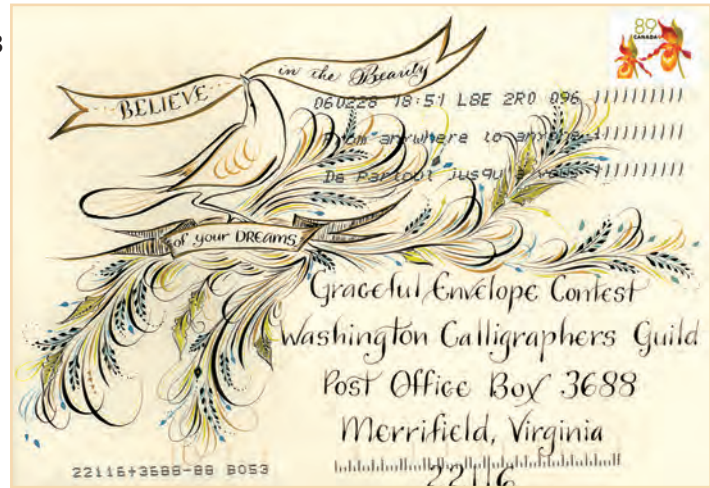 3
89
CANADA
BELIEVE in the Beauty
060228 18:51 L8E 2R0 096
From anywhere to anyone
De Partout jusqu'à vous
of your DREAMS
Graceful Envelope Contest
Washington Calligraphers Guild
Post Office Box 3688
Merrifield, Virginia
22116
22116+3688-88 B053